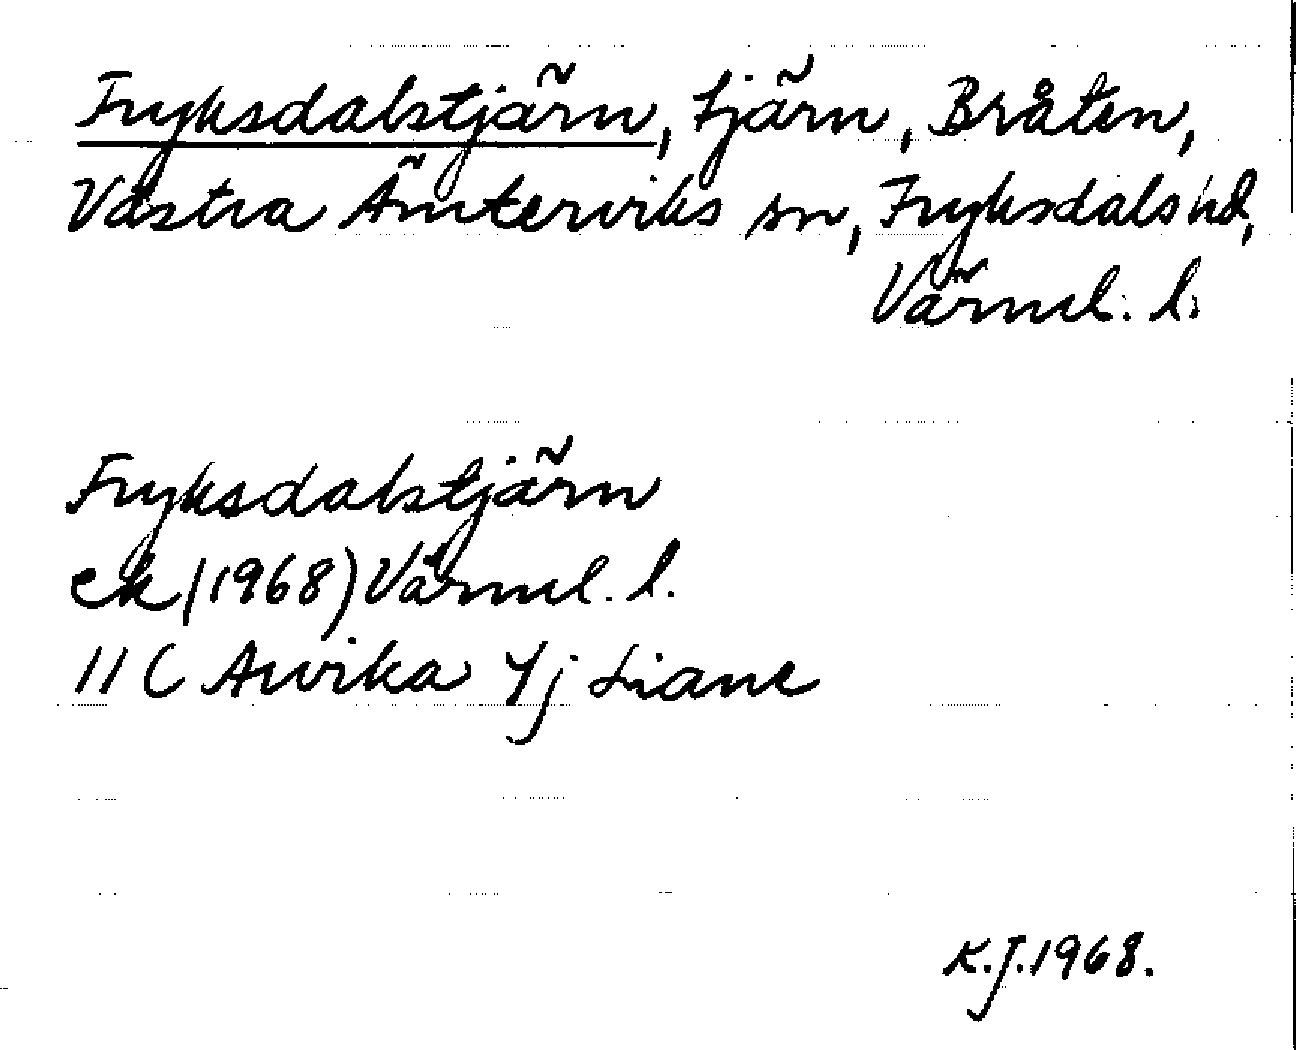 Fryksdalstjärn, tjärn, Bråten,
Västra Ämterviks sn, Fryksdals hd,
Värml. l.
Fryksdalstjärn
ek (1968) Värml. l.
11 C Arvika 4j Liane
K.J. 1968.